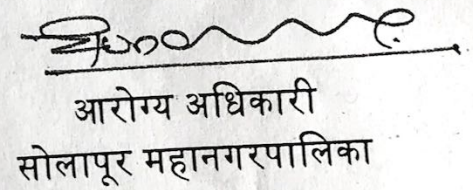 आरोग्य अधिकारी
सोलापूर महानगरपालिका